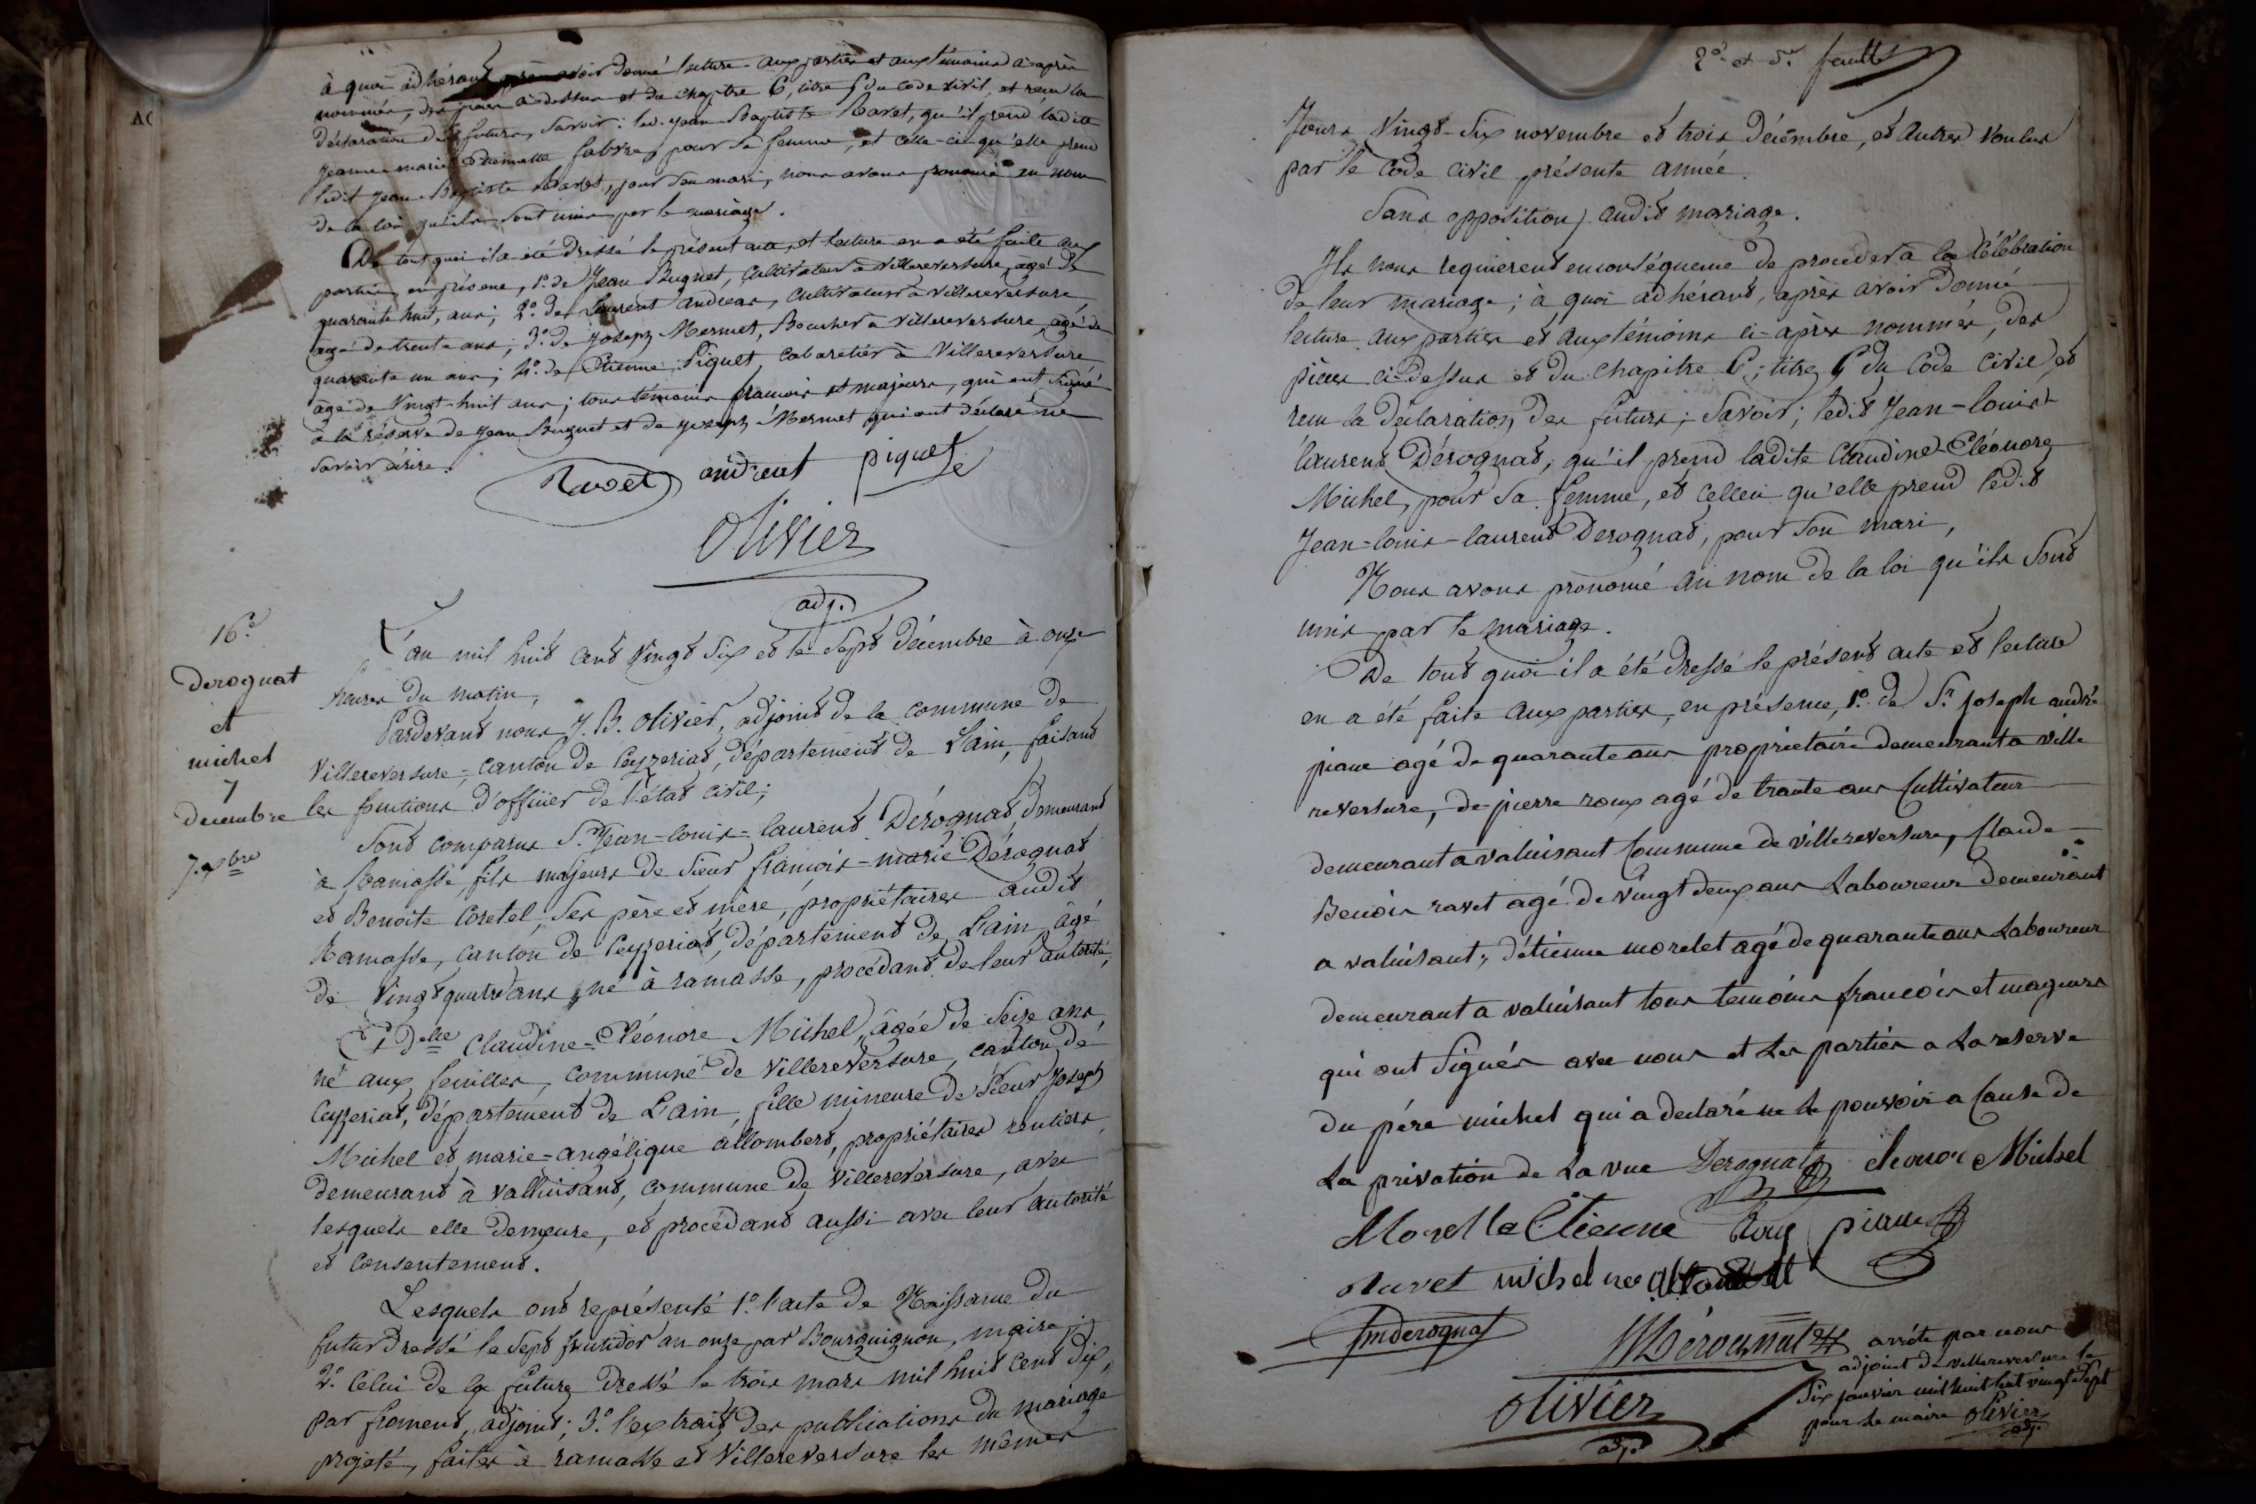 à quoi adhérant après avoir donné lecture aux parties et aux témoins ci-après
nommés, des pièces ci-dessus et du chapitre 6, titre 5 du code civil, et reçu la
déclaration des futurs, savoir: led. jean Baptiste Ravet, qu'il prend ladite
jeanne marie fabvre, pour sa femme, et celle-ci qu'elle prend
ledit jean Baptiste Ravet, pour son mari, nous avons prononcé au nom
de la loi qu'ils sont unis par le mariage.
De tout quoi il a été dressé le présent acte, et lecture en a été faite aux
parties en présence, 1º de Jean Buguet, cultivateur à Villereversure, agé de
quarante huit, ans; 2º de Laurent andreat, cultivateur à villereversure
agé de trente ans; 3º de Joseph Mermet, Boucher à Villereversure, agé de
quarante un ans; 4º de Etienne Piquet cabaretier à Villereversure
agé de Vingt-huit ans; tous témoins francois et majeurs, qui ont signé
à la réserve de jean Buguet et de joseph Mermet qui ont déclaré ne
savoir écrire.
Ravet andreat piquet
Olivier
adj.
16e
derognat
et
michel
7
decembre
7. xbre
L'an mil huit cent Vingt Six et le Sept décembre à onze
heures du matin,
Pardevant nous J. B. Olivier, adjoint de la commune de
Villereversure, canton de Ceyzeriat, département de l'ain, faisant
les fonctions d'officier de l'état civil;
Sont comparus Sr. Jean-louis-laurent Dérognat, demeurant
à Ramasse, fils majeur de Sieur francois-marie Dérognat
et Benoite Coretel, Ses père et mère, propriétaires audit
Ramasse, canton de Ceyzeriat, département de L'ain, âgé
de Vingt quatre ans, né à ramasse, procédant de leur autorité,
Et Delle Claudine-Eléonore Michel, âgée de Seize ans
né aux feuilles, commune de Villereversure, canton de
Ceyzeriat, département de L'ain, fille mineure de Sieur Joseph
Michel et marie-angélique allombert, propriétaires rentiers,
demeurant à valhuisant, commune de Villereversure, avec
lesquels elle demeure, et procédant aussi avec leur autorité
et consentement.
Lesquels ont représenté 1º l'acte de Naissance du
futur dressé le Sept fructidor an onze par Bourguignon, maire;
2º Celui de la future dressé le trois mars mil huit cent dix,
par froment, adjoint; 3º l'extrait des publications du mariage
projeté, faites à ramasse et Villereversure les mêmes
2e et De feuille
Jours Vingt-Six novembre et trois décembre, et autres voulus
par le Code civil présente année.
Sans opposition audit mariage.
Ils nous requierent en conséquence de procéder à la célébration
de leur mariage; à quoi adhérant, après avoir donné
lecture aux parties et aux témoins ci-après nommés, des
pièces ci-dessus et du chapitre 6, titre 5 du Code civil, et
reçu la déclaration des futurs; Savoir; ledit Jean-louis
laurent Dérognat, qu'il prend ladite Claudine Eléonore
Michel, pour Sa femme, et celleci qu'elle prend ledit
Jean-louis-laurent Derognat, pour Son mari,
Nous avons prononcé au nom de la loi qu'ils Sont
unis par le mariage.
De tout quoi il a été dressé le présent acte et lecture
en a été faite aux parties, en présence, 1º. de Sr. joseph andré
piane agé de quarante ans proprietaire demeurant a ville
reversure, de pierre roux agé de trante ans Cultivateur
demeurant a valuisant Commune de villereversure, Claude
Benois ravet agé de vingt deux ans Laboureur demeurant
a valuisant, d'étienne morelet agé de quarante ans Laboureur
demeurant a valuisant tous temoins francois et mageurs
qui ont Signés avec nous et les parties a La reserve
du pére michel qui a declaré ne le pouvoir a Cause de
La privation de La vue Derognat eleonor Michel
Morellé Etienne Roux piane
Ravet michel nee allombert
fmderognat Dérognat
arrété par nous
adjoint de villereversure le
Six janvier mil huit cent vingt Sept
pour le maire Olivier
adj.
Olivier
adj.